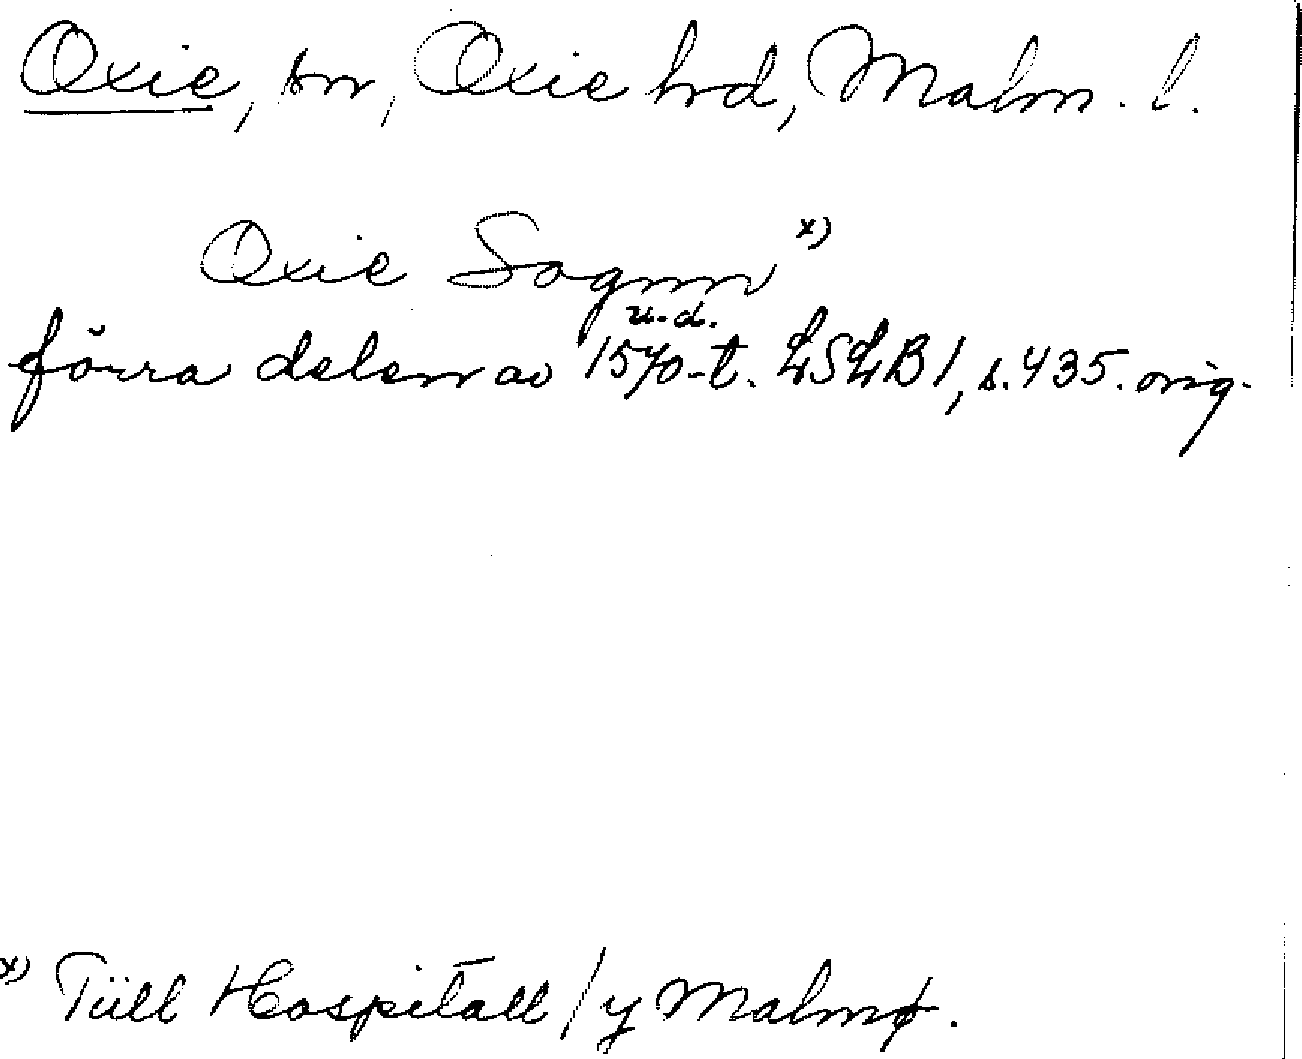 Oxie, sn, Oxie hrd, Malm. l.
Oxie Sognn x)
u.d.
förra delen av 1570-t. LSLB1, s. 435. orig.
x) Tüll Hospitall / y Malmø.